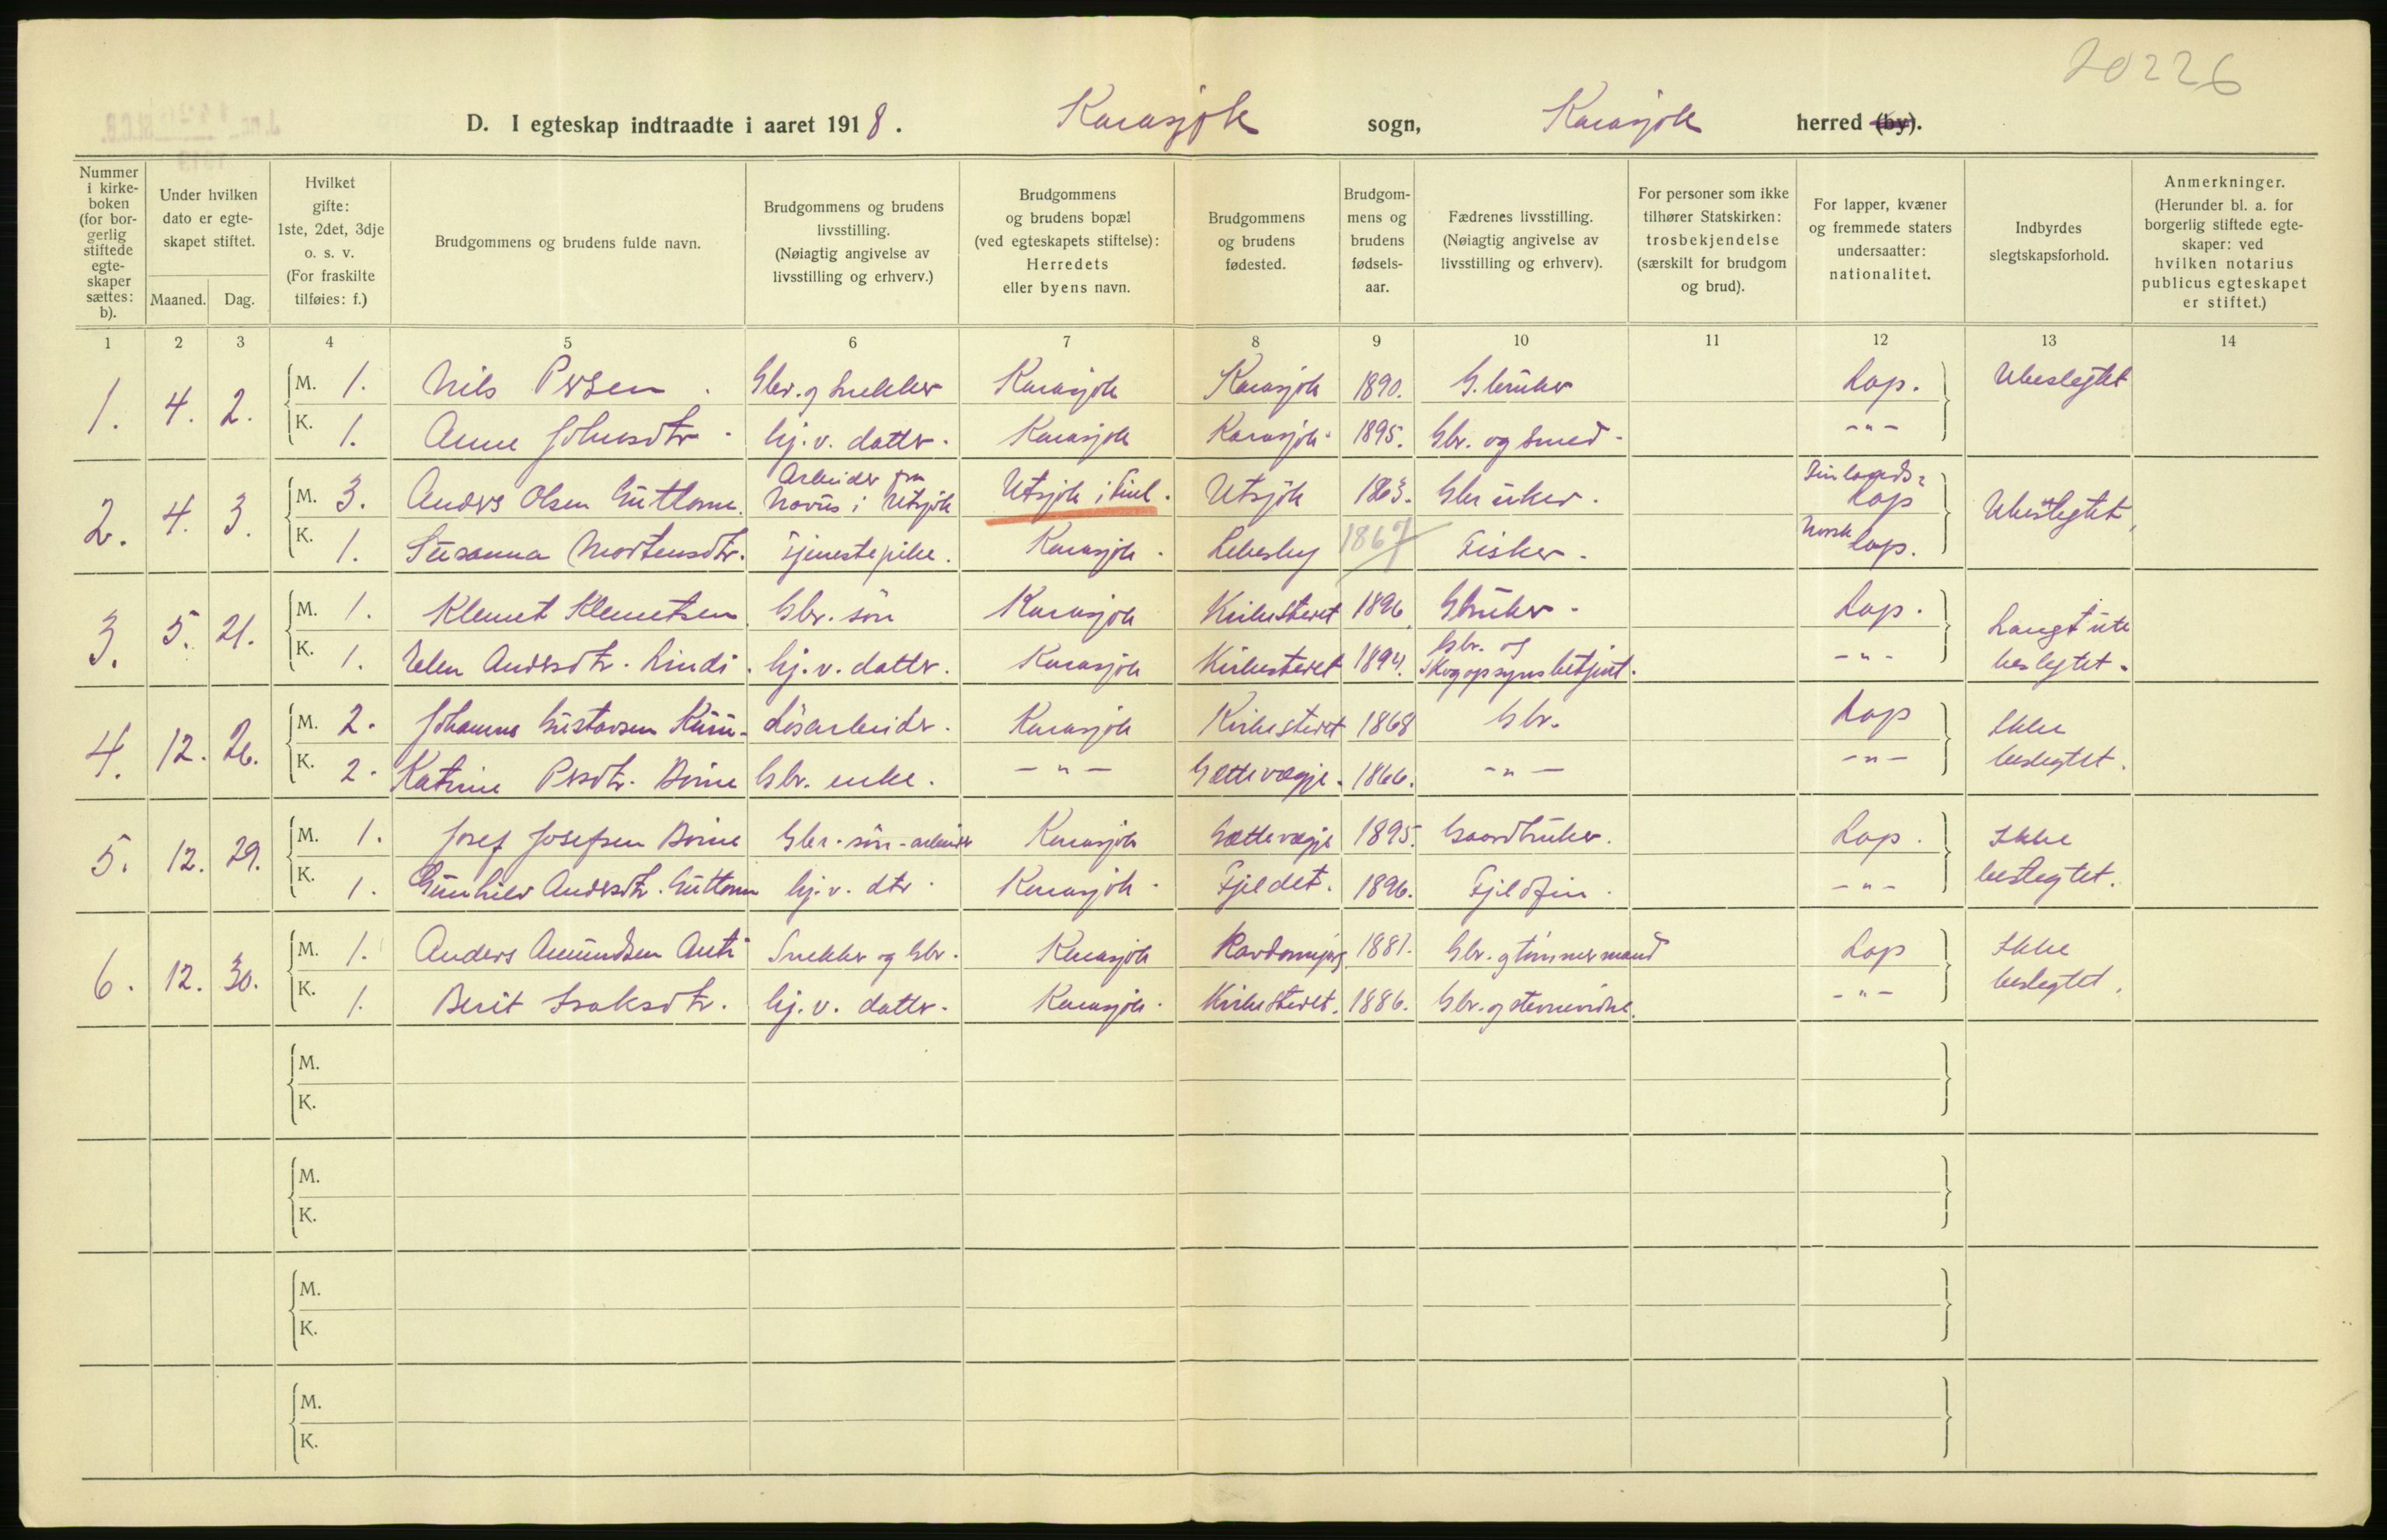 20226
D. I egteskap indtraadte i aaret 1918. Karasjok sogn, Karasjok herred (by).
Nummer i kirke-boken (for bor-gerlig stiftede egte-skaper sættes: b).
Under hvilken dato er egte-skapet stiftet.
Maaned. Dag.
Hvilket gifte: 1ste, 2det, 3dje o. s. v. (For fraskilte tilføies: f.)
Brudgommens og brudens fulde navn.
Brudgommens og brudens livsstilling. (Nøiagtig angivelse av livsstilling og erhverv.)
Brudgommens og brudens bopæl (ved egteskapets stiftelse): Herredets eller byens navn.
Brudgommens og brudens fødested.
Brudgom-mens og brudens fødsels-aar.
Fædrenes livsstilling. (Nøiagtig angivelse av livsstilling og erhverv).
For personer som ikke tilhører Statskirken: trosbekjendelse (særskilt for brudgom og brud).
For lapper, kvæner og fremmede staters undersaatter: nationalitet.
Indbyrdes slegtskapsforhold.
Anmerkninger. (Herunder bl. a. for borgerlig stiftede egte-skaper: ved hvilken notarius publicus egteskapet er stiftet.)
1 2 3 4 5 6 7 8 9 10 11 12 13 14
1. 4. 2. M. 1. Nils Persen. Gbr. og snekker Karasjok Karasjok 1890. G.bruker Lap. Ubeslegtet
K. 1. Anne Johnsdtr. hj. v. datter. Karasjok Karasjok. 1895. Gbr. og smed. -"-
2. 4. 3. M. 3. Anders Olsen Guttorm. Arbeider fra Novus i Utsjok Utsjok i Finl. Utsjok 1863. Gbruker. Finlands-Lap Ubeslegtet
K. 1. Susanna Mortensdtr. Tjenestepike. Karasjok. Lebesby 1867 Fisker. Norsk Lap.
3. 5. 21. M. 1. Klemet Klemetsen Gbr. søn Karasjok Kirkestedet 1896. Gbruker. Lap. Langt ute beslegtet.
K. 1. Elen Andersdtr. Lindi. hj. v. datter. Karasjok Kirkestedet 1894. Gbr. og skogopsynsbetjent. -"-
4. 12. 26. M. 2. Johannes Gustavsen Løsarbeider. Karasjok Kirkestedet 1868 Gbr. Lap Ikke beslegtet.
K. 2. Katrine Persdtr. Boine Gbr. enke. -"- Gættevægje. 1866. -"- -"-
5. 12. 29. M. 1. Josef Josefsen Boine Gbr. søn - arbeider Karasjok Gættevægje 1895. Gaardbruker. Lap. Ikke beslegtet.
K. 1. Gunhild Andersdtr. Guttorm hj. v. dtr. Karasjok. Fjeldet. 1896. Fjeldfin. -"-
6. 12. 30. M. 1. Anders Amundsen Anti Snekker og Gbr. Karasjok Ravdonjarg 1881. Gbr. og tømmermand Lap Ikke beslegtet.
K. 1. Berit Isaksdtr. hj. v. datter. Karasjok. Kirkestedet. 1886. Gbr. og stevnevidne. -"-
M.
K.
M.
K.
M.
K.
M.
K.